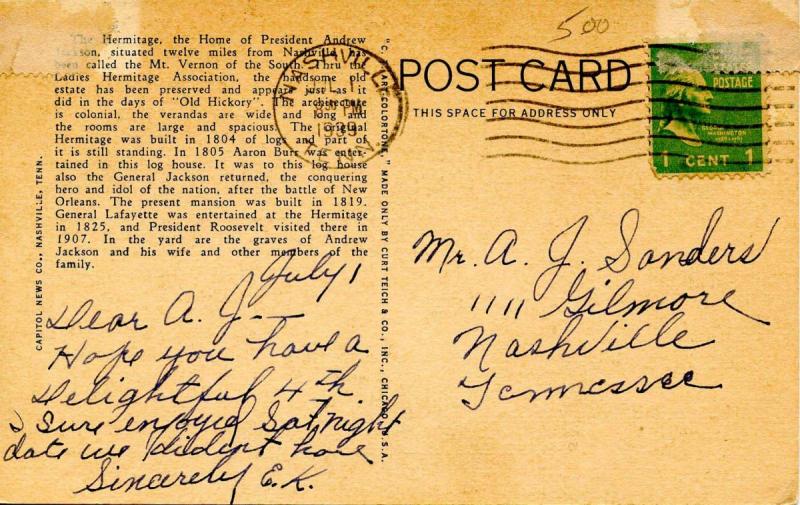 The Hermitage, the Home of President Andrew
Jackson, situated twelve miles from Nashville has
been called the Mt. Vernon of the South. Thru the
Ladies Hermitage Association, the handsome old
estate has been preserved and appears just as it
did in the days of "Old Hickory". The architecture
is colonial, the verandas are wide and long and
the rooms are large and spacious. The original
Hermitage was built in 1804 of logs and part of
it is still standing. In 1805 Aaron Burr was enter-
tained in this log house. It was to this log house
also the General Jackson returned, the conquering
hero and idol of the nation, after the battle of New
Orleans. The present mansion was built in 1819.
General Lafayette was entertained at the Hermitage
in 1825, and President Roosevelt visited there in
1907. In the yard are the graves of Andrew
Jackson and his wife and other members of the
family.
CAPITOL NEWS CO., NASHVILLE, TENN.
July 1
Dear A. J. —
Hope you have a
delightful 4th.
I sure enjoyed Sat night
date we dident have
Sincerely E.K.
"C. T. ART-COLORTONE", MADE ONLY BY CURT TEICH & CO., INC., CHICAGO, U.S.A.
NASHVILLE
PM
1939
500
POST CARD
THIS SPACE FOR ADDRESS ONLY
STATES
POSTAGE
GEORGE
WASHINGTON
1 CENT 1
Mr. A. J. Sanders
1111 Gilmore
Nashville
Tennessee